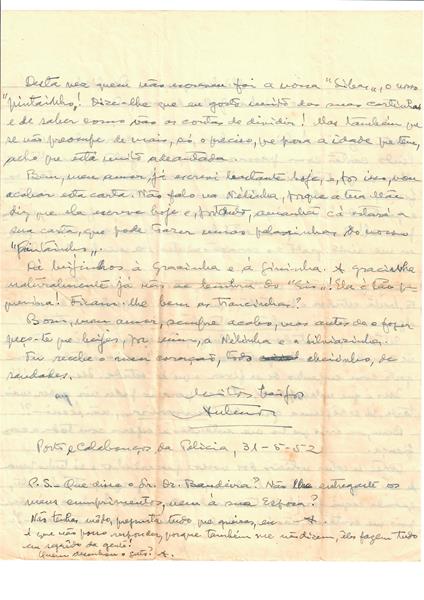 Desta vez quem não escreveu foi a nossa "Silva", o nosso
"pintainho"! Dize-lhe que eu gosto muito das suas cartinhas
e de saber como vão as contas de dividir! Mas também que
se não preocupe de mais, só o preciso, que para a idade que tem,
acho que está muito adeantada.
Bom, meu amor, já escrevi bastante hoje, e, por isso, vou
acabar esta carta. Não falo na Nélinha, porque a tua
diz que ela escreve hoje e, portanto, amanhã cá estará a
sua carta, que pode trazer umas palavrinhas do nosso
"pintainho".
Dá beijinhos à Gracinha e à Gininha. A gracinha
naturalmente já não se lembra do Ela é tão pe
quenina! Ficam-lhe bem as trancinhas?
Bom, meu amor, sempre acabo, mas antes de o fazer
peço-te que beijes, por mim, a Nélinha e a Silviazinha.
Tu recebe o meu coração, todo cheiinho, de
saudades.
Muitos beijos
Porto e Calabouços da Polícia, 31-5-52
P.S. - Que disse o Sr. Dr. Bandeira? Não lhe entregaste os
meus cumprimentos, nem à sua Esposa?
Não tenhas mêdo, pergunta tudo que queiras, eu A.
é que não posso responder, porque também me não dizem, eles fazem tudo
em segredo da gente!
Quem desenhou o gato? A.